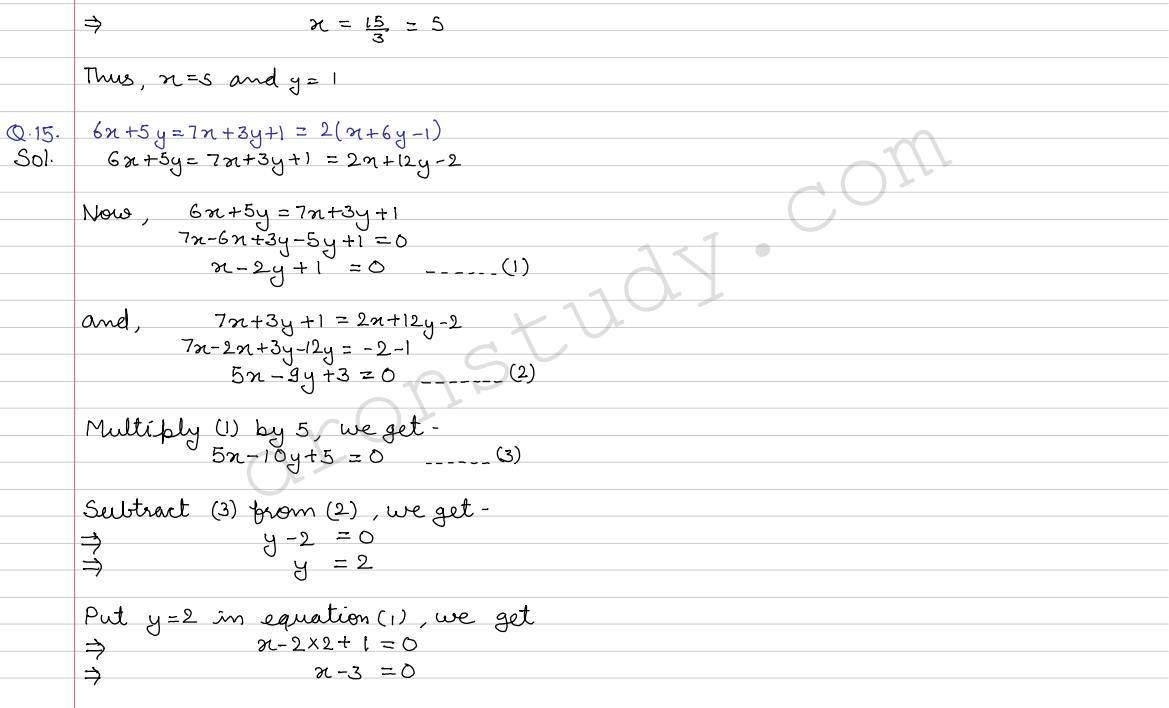 ⇒ x = 15/3 = 5
Thus, x=5 and y= 1
Q.15. 6x+5y=7x+3y+1 = 2(x+6y-1)
Sol. 6x+5y= 7x+3y+1 = 2x+12y-2
Now, 6x+5y=7x+3y+1
7x-6x+3y-5y+1 =0
x-2y+1 =0 ------(1)
and, 7x+3y+1 = 2x+12y-2
7x-2x+3y-12y= -2-1
5x-9y+3 =0 -------(2)
Multiply (1) by 5, we get-
5x-10y+5 =0 ------(3)
Subtract (3) from (2), we get-
⇒ y-2 =0
⇒ y =2
Put y=2 in equation (1), we get
⇒ x-2×2+1=0
⇒ x-3 =0
aronstudy.com